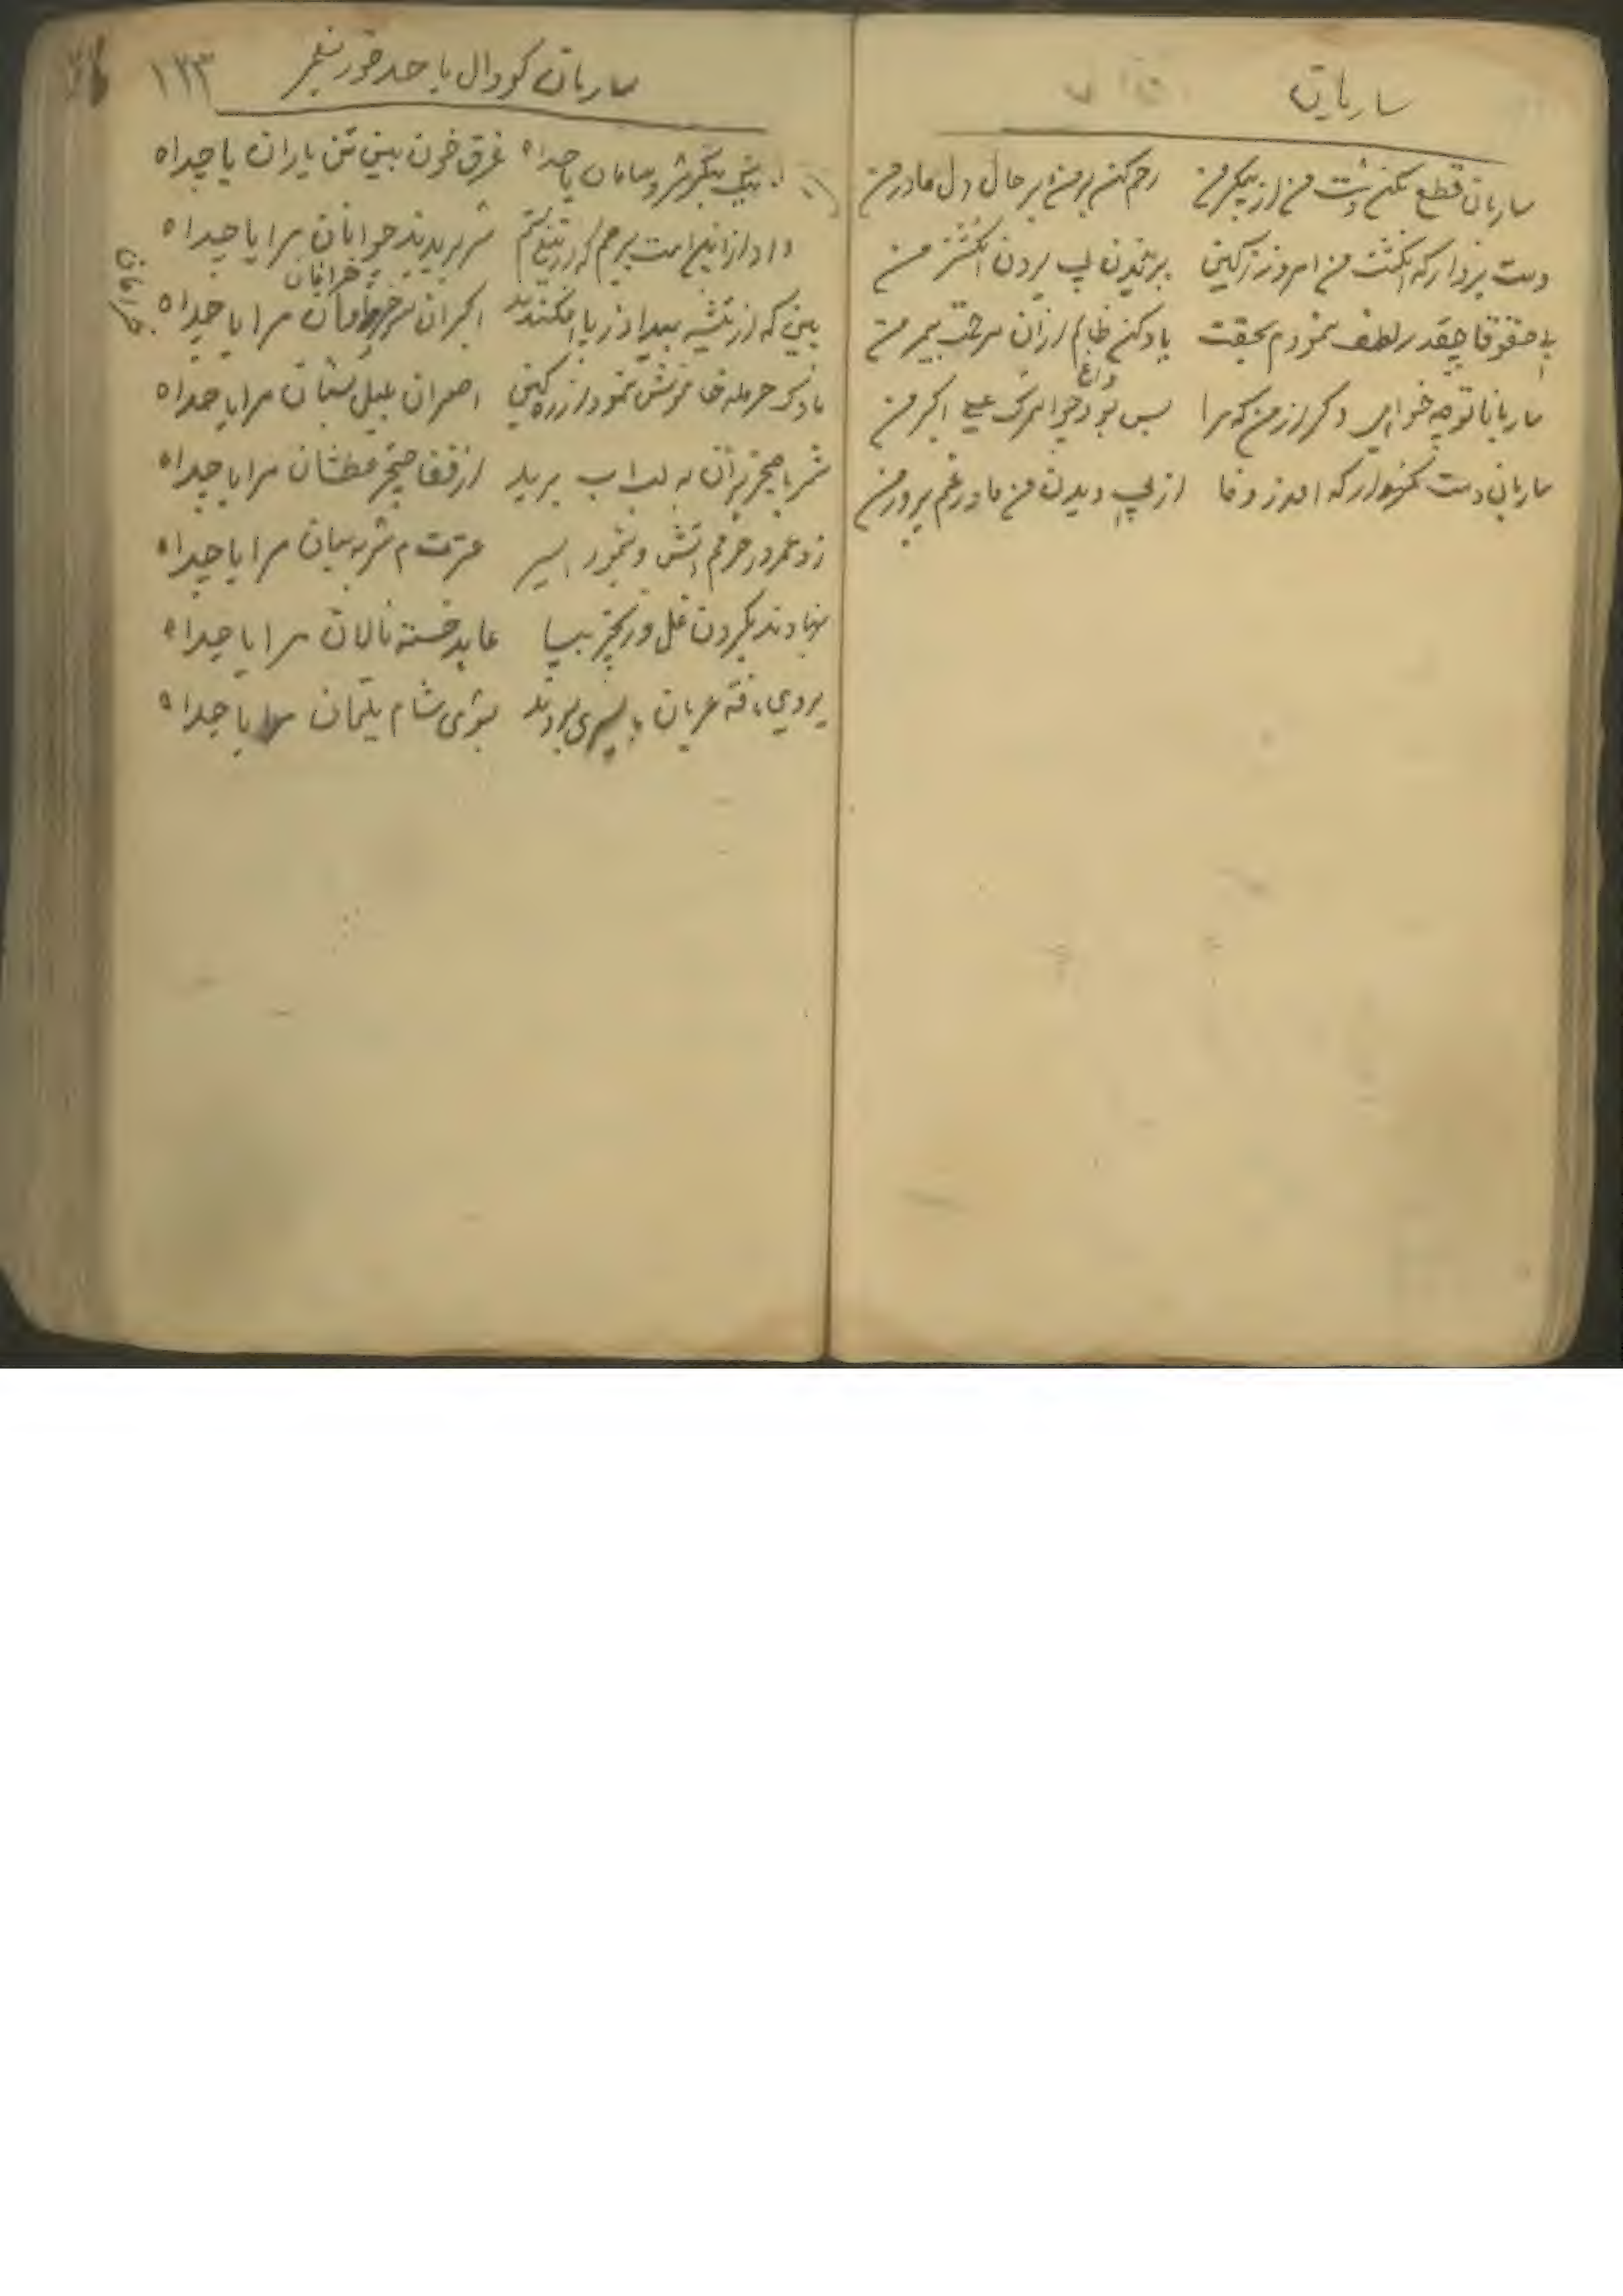 ساربان
ساربان قطع مکن دست من از پیکر من رحم کن بر من و بر حال دل مادر من
دست بردار که انگشت من امروز ز کین ببریدن پی بردن انگشتر من
بی حقوقا چقدر لطف نمودم بحقت یاد کن ظالم از آن مرحمت بیمر من
ساربانا تو چه خواهی دگر از من که مرا بس بود داغ جوانمرگ علی اکبر من
ساربان دست نگهدار که امروز وفا از پی دیدن من مادر غم پرور من
۱۲۳
ساربان گودال با جد خود پیغمبر
بنگر سر و سامان یا جداه غرق خون بین تن یاران یا جداه
داد از این امت بیرحم که از تیغ ستم سر بریدند جوانان مرا یا جداه
خرامان
بین که از تیشه بیداد ز پا افکندند اکبر آن سرو خرامان مرا یا جداه
خرامان
ناوک حرمله خاموش نمود از ره کین اصغر آن بلبل بستان مرا یا جداه
شمر با خنجر بران به لب آب برید از قفا حنجر عطشان مرا یا جداه
زد عمر در حرمم آتش و بنمود اسیر عترت بی سر و سامان مرا یا جداه
بنهادند بگردن غل و زنجیر بپا عابد خسته نالان مرا یا جداه
بروی ناقه عریان به اسیری بردند بسوی شام یتیمان مرا یا جداه